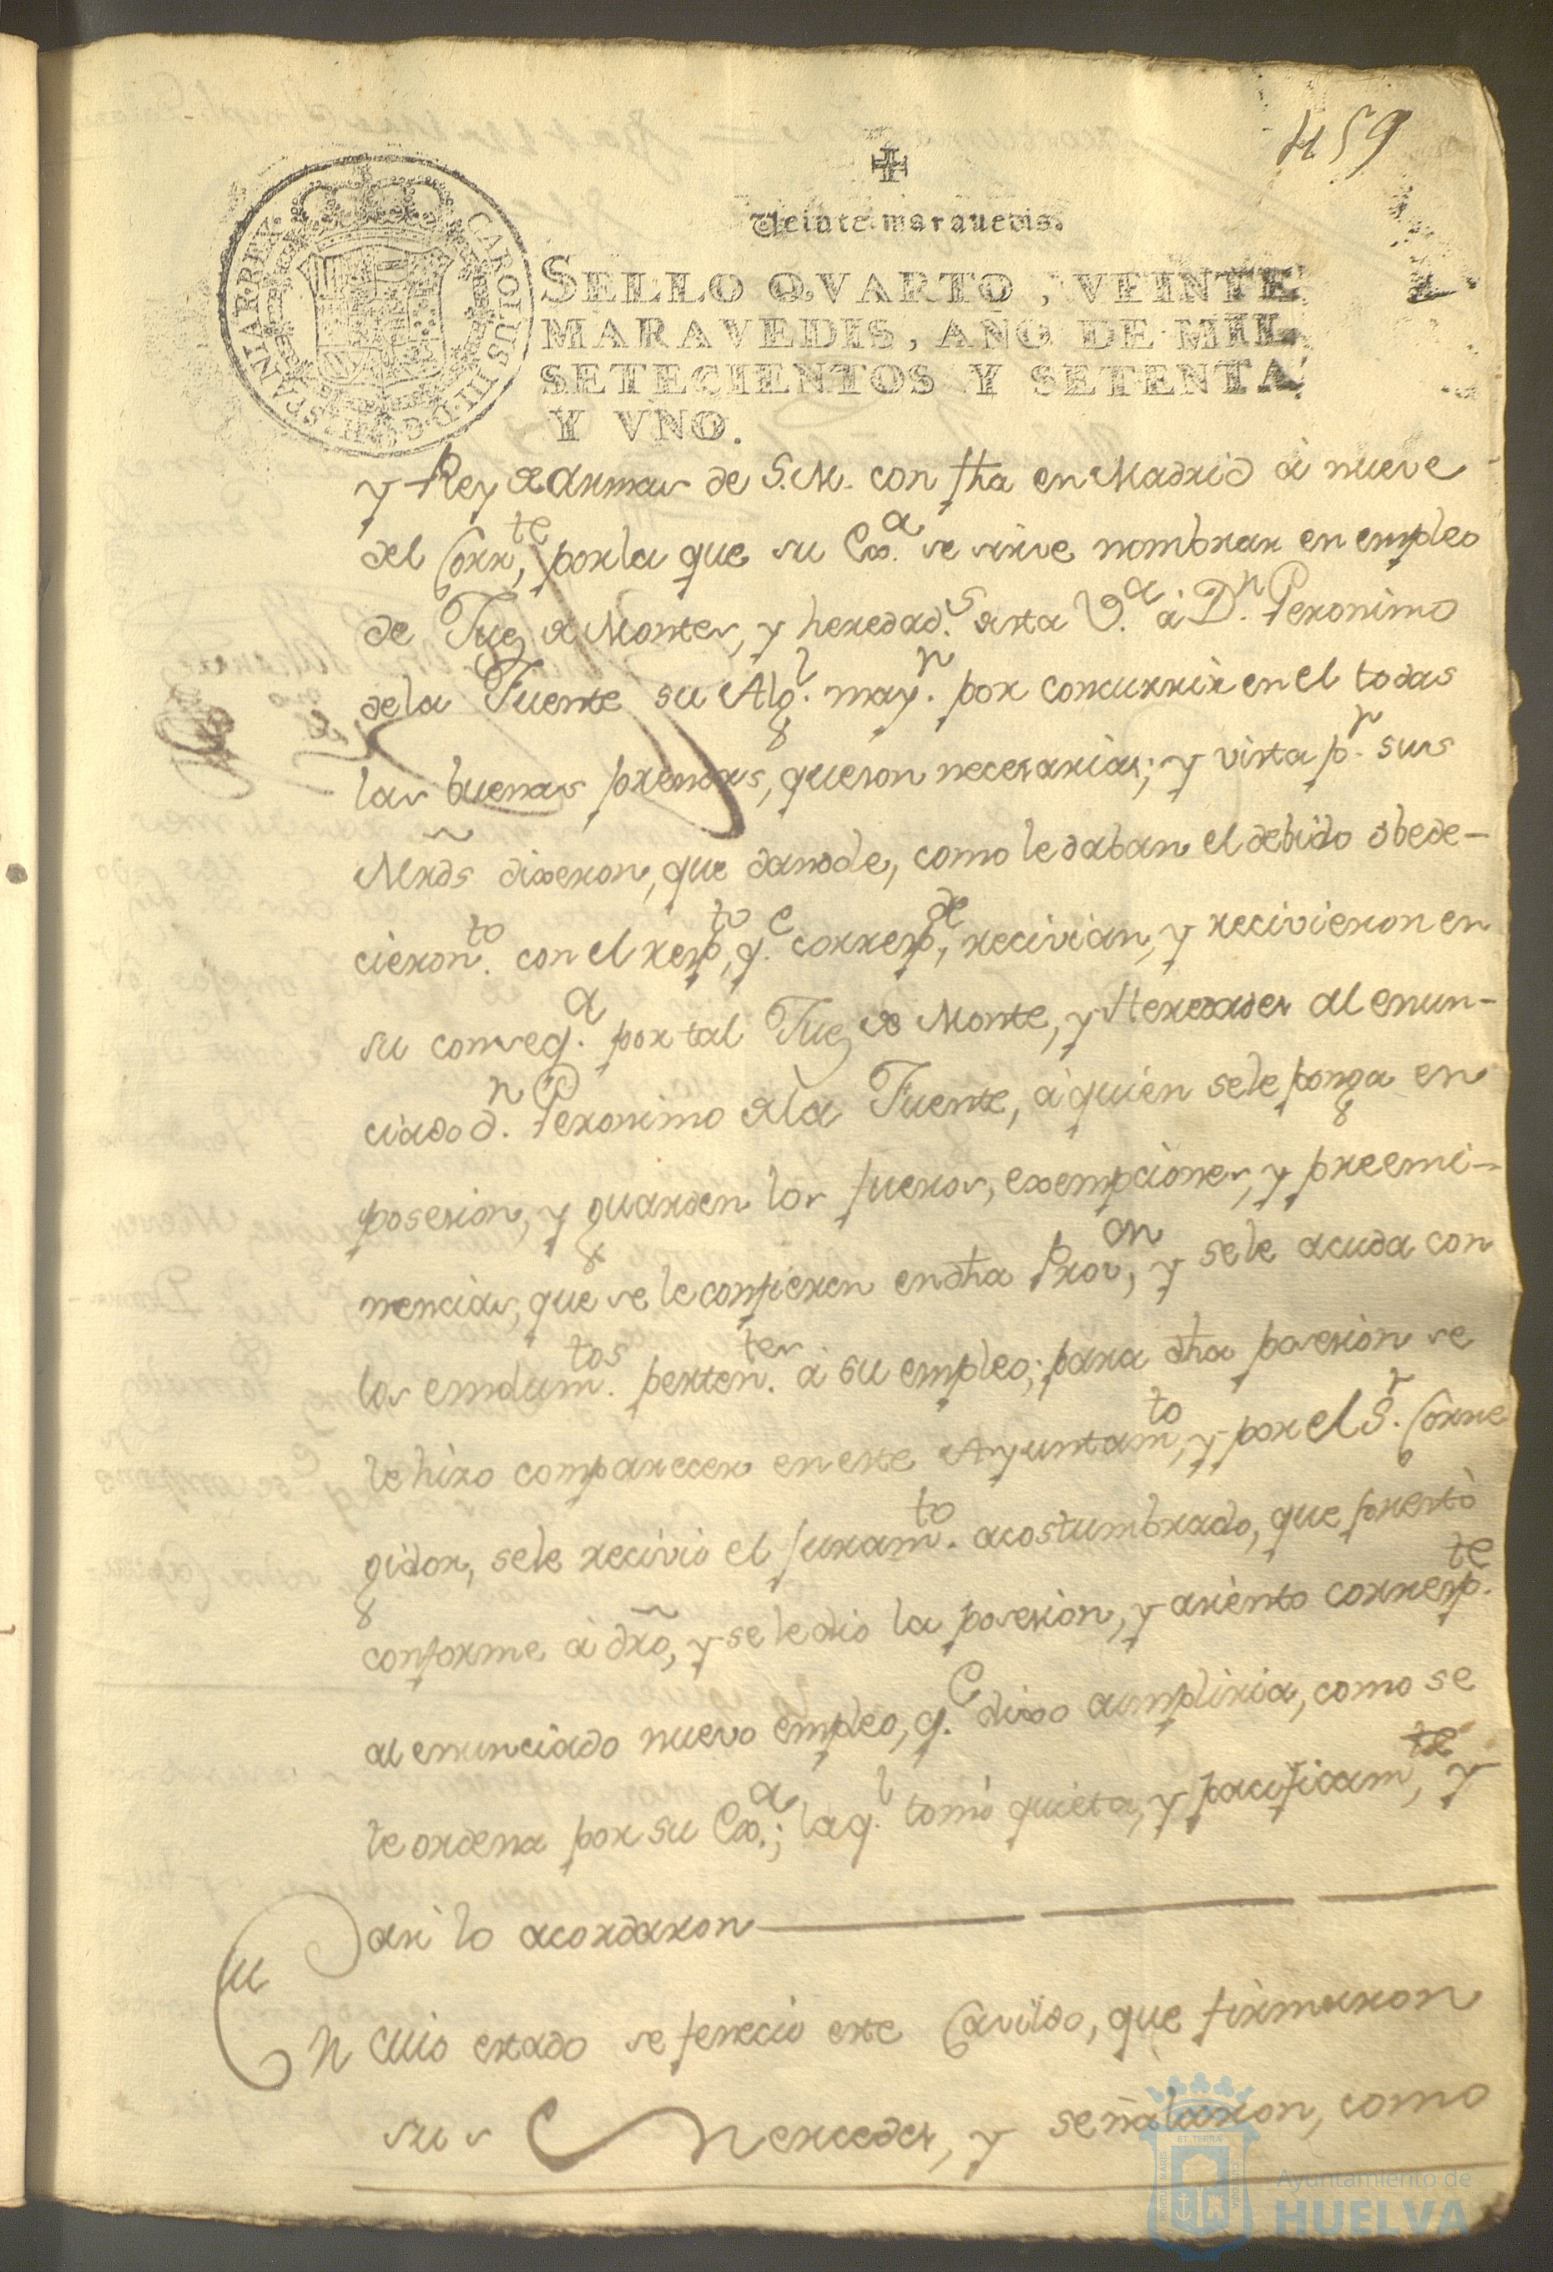 459
Veinte maravedis.
SELLO QVARTO, VEINTE
MARAVEDIS, AÑO DE MIL
SETECIENTOS Y SETENTA
Y VNO.
CAROLUS III D G HISPANIAR REX
y Rey de Armas de S.M. con fha en Madrid à nueve
del Corr.te, por la que su Exa. se sirve nombrar en empleo
de Juez de Montes, y heredad.s desta V.a à D.n Geronimo
de la Fuente su Alg.l may.r por concurrir en el todas
las buenas prendas, que son necesarias; y vista p.r sus
Mrds dixeron, que dandole, como le daban el debido obede-
cieron.to con el resp.to, q.e corresp.de, recivian, y recivieron en
su conseq.a por tal Juez de Monte, y Heredades al enun-
ciado d.n Geronimo de la Fuente, à quien se le ponga en
posesion, y guarden los fueros, exempciones, y preemi-
nencias, que se le confieren en dha Prov.on, y se le acuda con
los emolum.tos perten.tes à su empleo; para dha posesion se
le hizo comparecer en este Ayuntam.to, y por el S.r Corre
gidor, se le recivio el juram.to acostumbrado, que prestò
conforme à dro, y se le dio la posesion, y asiento corresp.te
al enunciado nuevo empleo, q.e dixo cumpliria, como se
le ordena por su Ex.a; la q.l tomò quieta, y pacificam.te, y
asi lo acordaron
En cuio estado se feneció este Cavildo, que firmaron
sus Mercedes, y señalaron, como
Ayuntamiento de
HUELVA